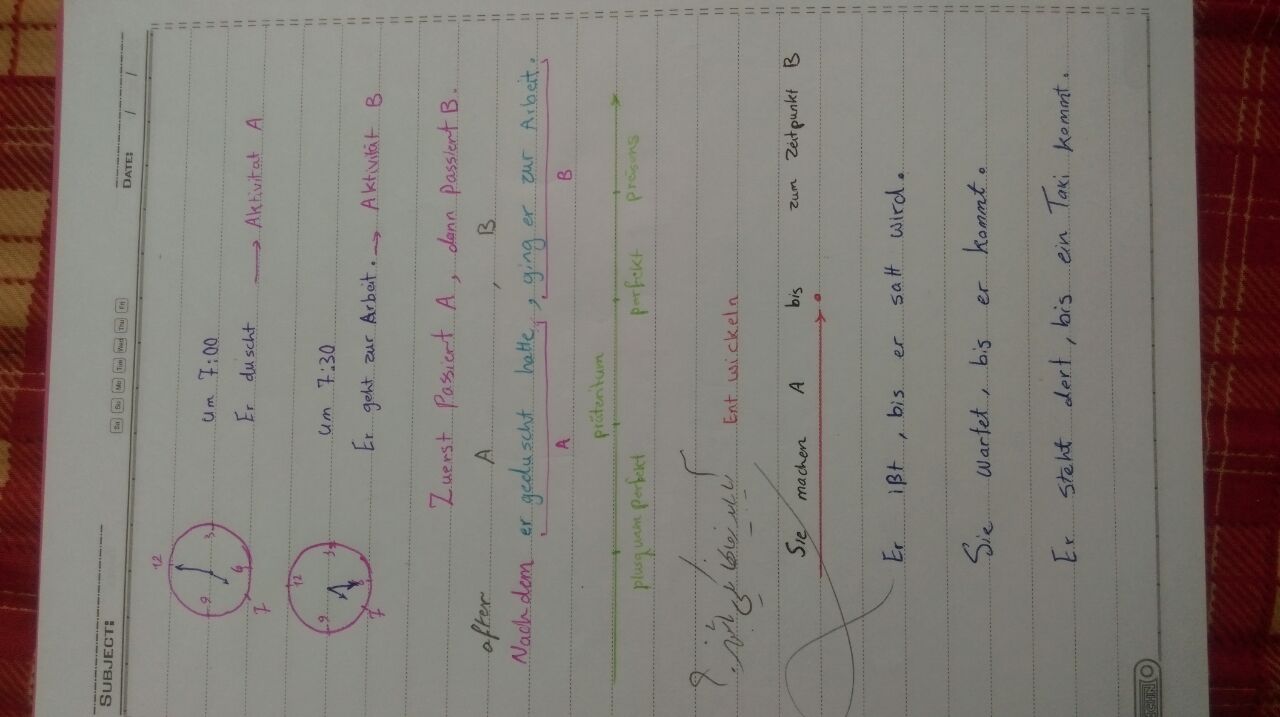 SUBJECT:
DATE: / /
Sa Su Mo Tue Wed Thu Fri
12 3 6 7 9
um 7:00
Er duscht → Aktivität A
12 3 6 7 9
um 7:30
Er geht zur Arbeit. → Aktivität B
Zuerst Passiert A, dann Passiert B.
after A , B
Nachdem er geduscht hatte, ging er zur Arbeit.
A B
präteritum
plusquamperfekt perfekt präsens
Entwickeln
Sie machen A bis zum Zeitpunkt B
Er ißt, bis er satt wird.
Sie wartet, bis er kommt.
Er steht dert, bis ein Taki kommt.